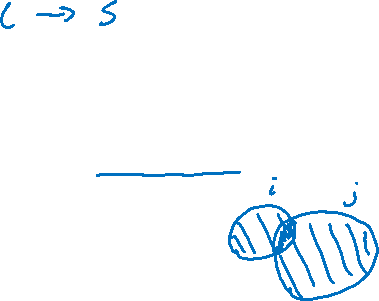 l → s
i j